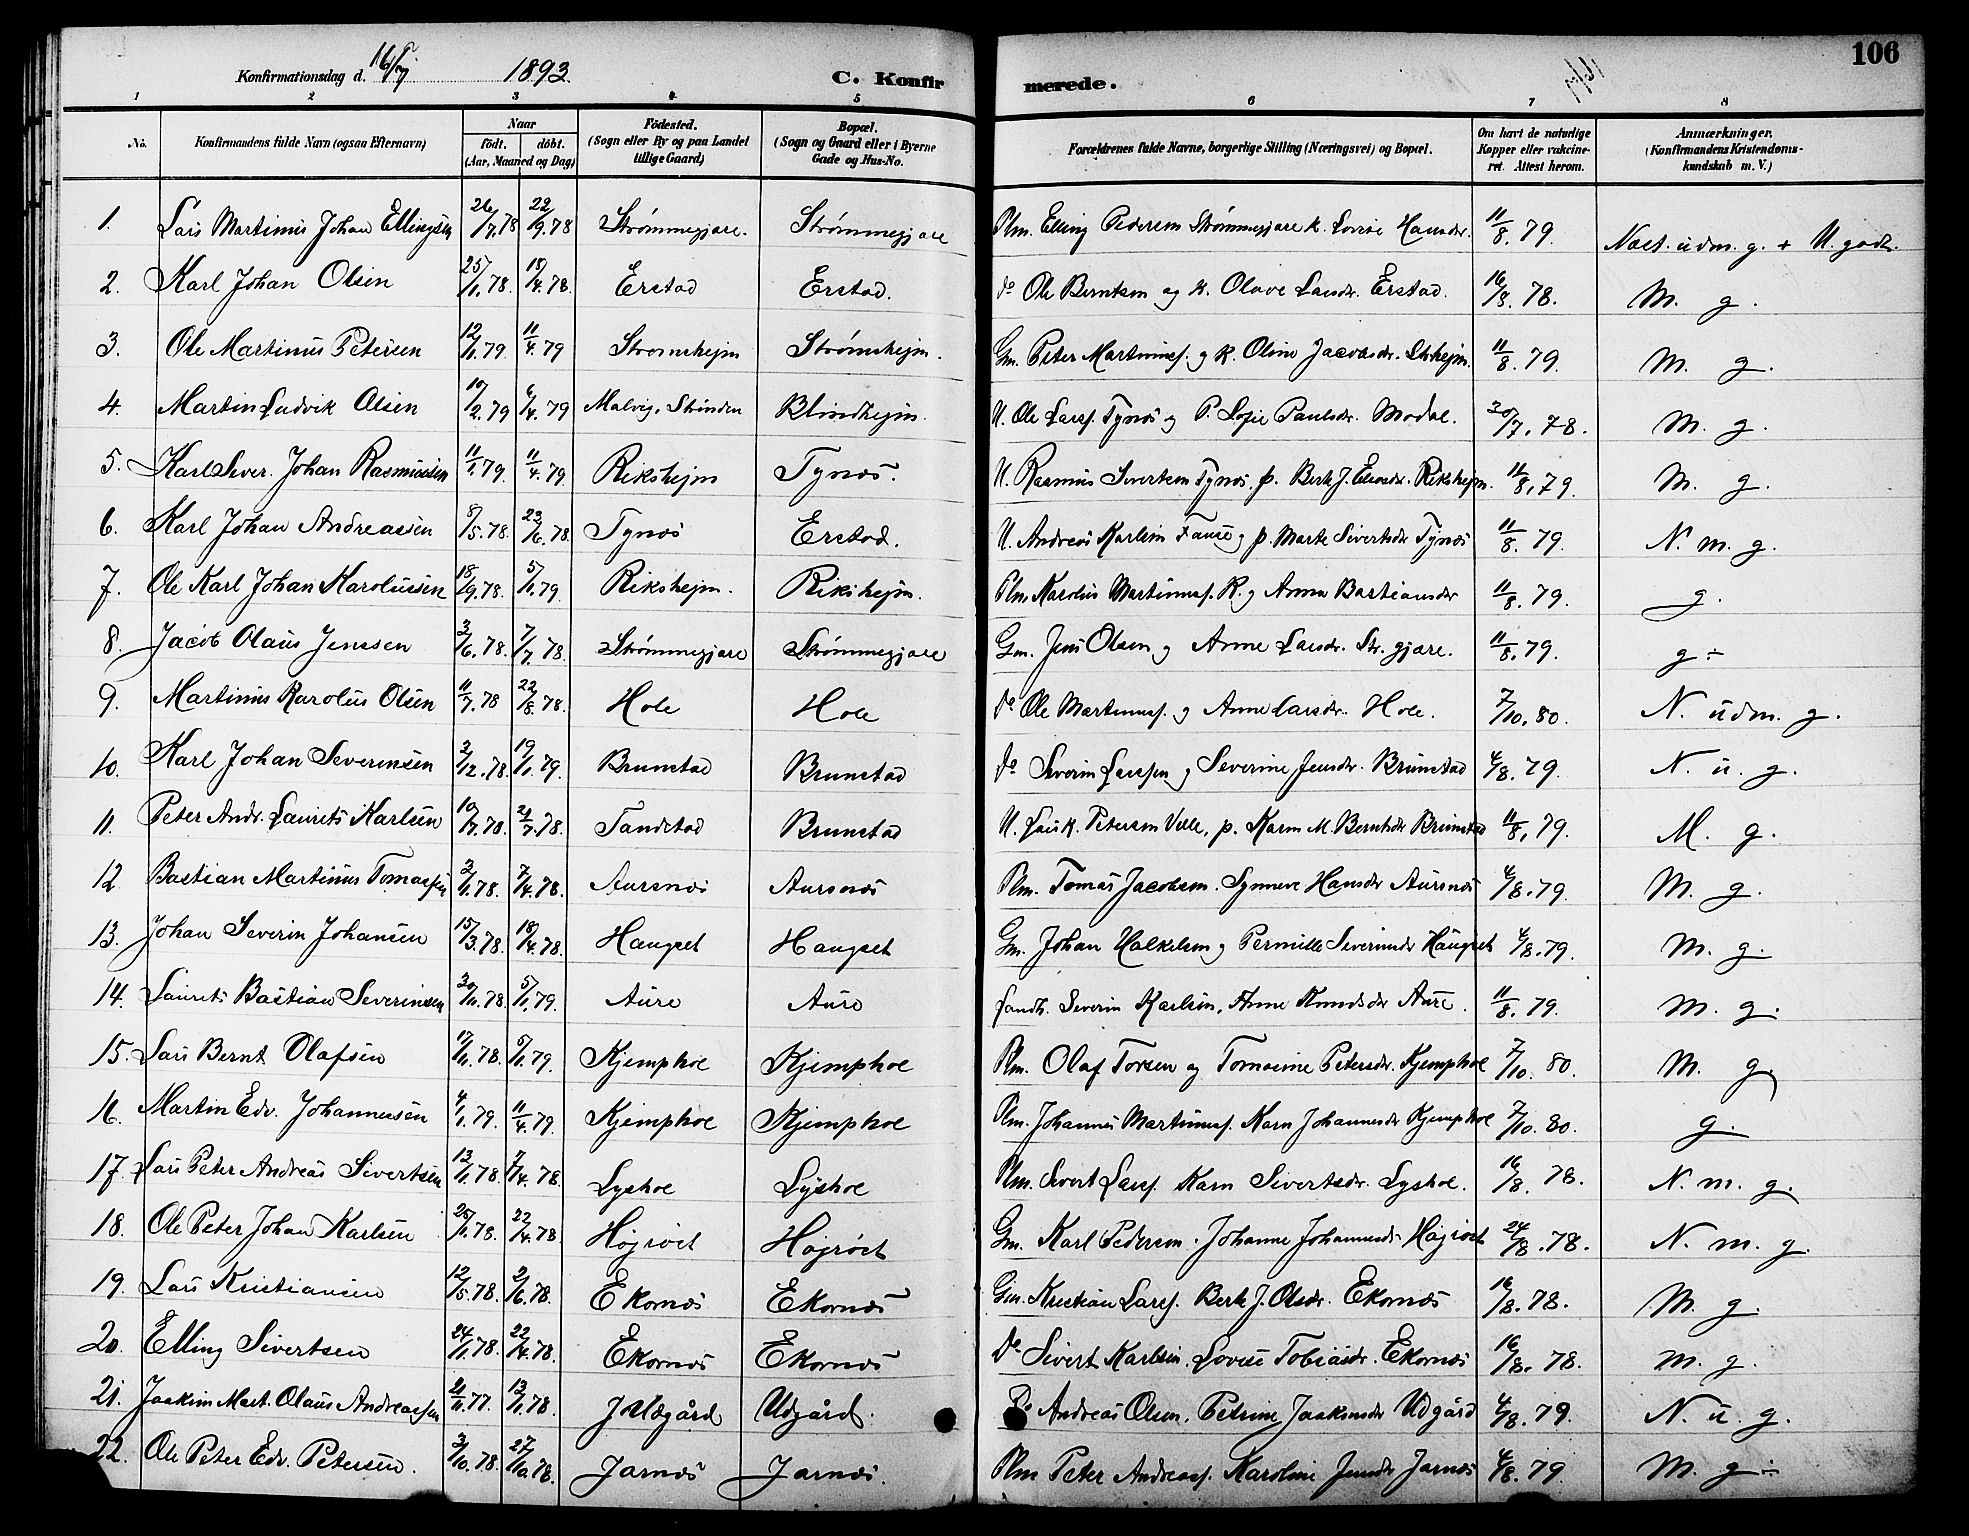 106
Konfirmationsdag d. 16/7 1893. C. Konfirmerede.
1 2 3 4 5 6 7 8
No. Konfirmandens fulde Navn (ogsaa Efternavn) Naar födt. döbt. (Aar, Maaned og Dag) Födested. (Sogn eller By og paa Landet tillige Gaard) Bopæl. (Sogn og Gaard eller i Byerne Gade og Hus-No. Forældrenes fulde Navne, borgerlige Stilling (Næringsvei) og Bopæl. Om havt de naturlige Kopper eller vakcineret. Attest herom. Anmærkninger. (Konfirmandens Kristendomskundskab m. V.)
1. Lars Martinus Johan Ellingsen 26/7.78 22/9.78 Strømmegjære. Strømmegjære Plm. Elling Pedersen Strømmegjære k. Lovise Hansdr. 11/8.79. Næst. udm. g. + M. godt.
2. Karl Johan Olsen 25/1.78. 18/4.78. Erstad Erstad. do Ole Berntsen og k. Olave Larsdr. Erstad. 16/8.78. M. g.
3. Ole Martinus Petersen 12/1.79. 11/4.79 Strømshejm Strømshejm. Gm. Peter Martinusf. og k. Oline Jacobsdr. Strhejm. 11/8.79. M. g.
4. Martin Ludvik Olsen 10/2.79 6/4.79 Malvig, Strinden Blindhejm. U. Ole Larsf. Tynæs og P. Sofie Paulsdr. Modal. 30/7.78. M. g.
5. Karl Siver. Johan Rasmussen 11/1.79. 11/4.79. Rikshejm Tynæs. U. Rasmus Sivertsen Tynæs, p. Berte J. Eliasdr. Rikshejm. 11/8.79. M. g.
6. Karl Johan Andreassen 8/5.78. 23/6.78. Tynæs Erstad. U. Andreas Karlsen Fause og p. Marte Sivertsdr Tynæs 11/8.79. N. m. g.
7. Ole Karl Johan Karolussen 18/9.78. 5/1.79. Rikshejm. Rikshejm. Plm. Karolus Martinusf. R. og Anna Bastiansdr 11/8.79. g.
8. Jacob Olaus Jenssen 3/6.78. 7/7.78. Strømmegjære Strømmegjære Gm. Jens Olsen og Anne Larsdr. Str. gjære. 11/8.79. g ÷
9. Martinus Karolus Olsen 11/7.78 22/8.78. Hole Hole do Ole Martinusf. og Anne Larsdr. Hole. 7/10.80. N. udm. g.
10. Karl Johan Severinsen 2/12.78. 19/1.79. Brunstad Brunstad do Severin Larssen og Severine Jensdr. Brunstad 4/8.79. N. u. g.
11. Peter Andr. Laurits Karlsen 10/7.78. 21/7.78. Tandstad Brunstad U. Lars K. Petersen Velle, p. Karen M. Berntsdr Brunstad 11/8.79. M. g.
12 Bastian Martinus Tomassen 3/1.78. 7/4.78. Aursnæs Aursnæs Plm. Tomas Jacobsen. Synneve Hansdr Aursnæs 4/8.79. M. g.
13. Johan Severin Johansen 15/3.78. 18/4.78. Haugset Haugset Gm. Johan Halkelsen og Pernille Severinsdr Haugset 4/8.79. M. g.
14. Laurits Bastian Severinsen 30/11.78. 5/1.79. Aure Aure Landh. Severin Karlsen, Anne Knudsdr Aure. 11/8.79. M. g.
15. Lars Bernt Olafsen 17/11.78. 5/1.79. Kjemphoe Kjemphoe Plm. Olaf Torsen og Tomasine Petersdr. Kjemphoe 7/10.80. M. g.
16. Martin Edv. Johannessen 4/1.79. 11/4.79. Kjemphoe Kjemphoe Plm. Johannes Martinusf. Karn Johannesdr Kjemphoe 7/10.80. g.
17. Lars Peter Andreas Sivertsen 13/1.78. 7/4.78. Lyshoe Lyshoe Plm. Sivert Larsf. Karn Sivertsdr. Lyshoe. 16/8.78. N. m. g.
18. Ole Peter Johan Karlsen 25/1.78. 22/4.78 Højröst Højröst Gm. Karl Pedersen. Johanne Johannesdr Højröst 24/8.78. N. m. g.
19. Lars Kristiansen 12/5.78. 2/6.78. Ekornæs Ekornæs Gm. Kristian Larsf. Berte J. Olsdr. Ekornæs 16/8.78. M. g.
20. Elling Sivertsen 24/1.78. 22/4.78. Ekornæs Ekornæs do Sivert Karlsen. Lovise Tobiasdr. Ekornæs 16/8.78. M. g.
21. Joakim Mart. Olaus Andreassen 21/11.77. 13/1.78. J Udgård Udgård. do Andreas Olsen, Petrine Joakimsdr Udgård 4/8.79. N. u. g.
22. Ole Peter Edv. Petersen. 3/10.78. 27/10.78. Jarnæs Jarnæs. Plm Peter Andreasf. Karoline Jensdr Jarnæs 4/8.79 M. g ÷